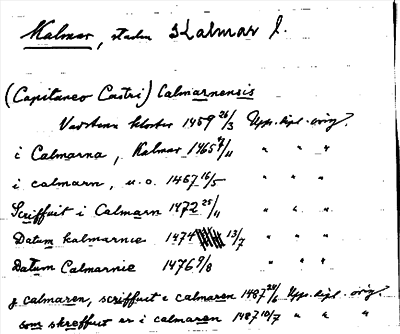 Kalmar, staden Kalmar l.
(Capitaneo Castri) Calmarnensis
Vadstena kloster 1459 26/3 Upps. dipl. orig.
i Calmarna, Kalmar 1465 /11 " " "
i calmarn, u.o. 1467 16/5 " " "
Scriffuit i Calmarn 1472 25/11 " " "
Datum kalmarnie 1474 13/7 " " "
Datum Calmarnie 1476 9/8 " " "
j calmaren, scriffuit i calmaren 1487 24/6 Upps. dipl. orig.
som skreffuet er i calmaren 1487 10/7 " " "